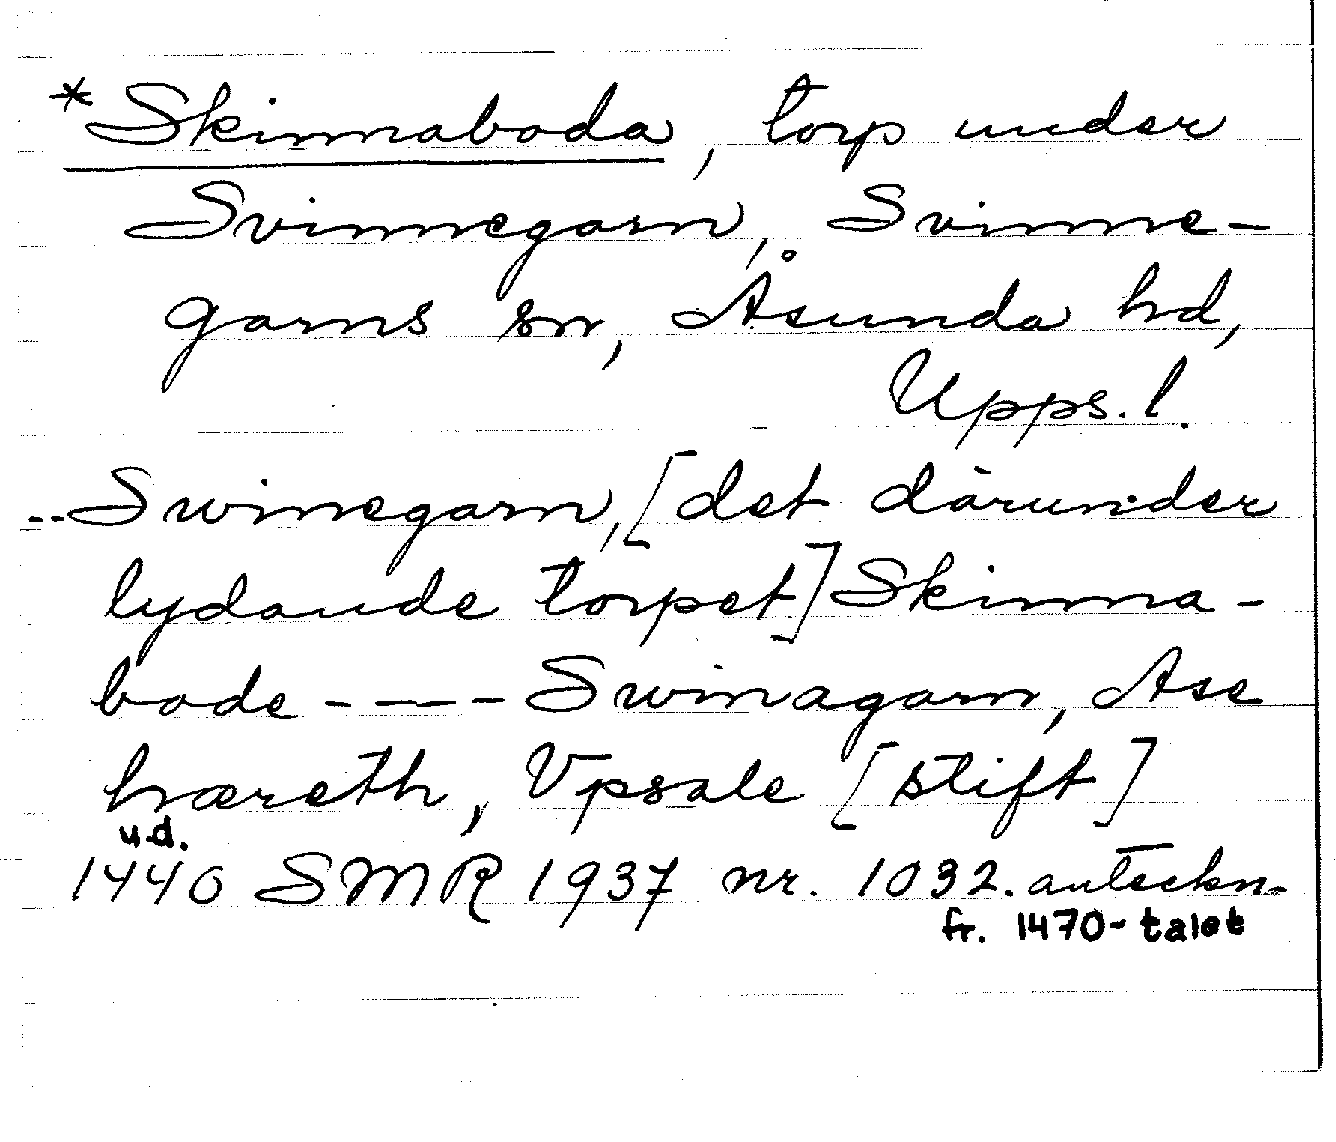 *Skinnaboda, torp under
Svinnegarn, Svinne-
garns sn, Åsunda hd,
Upps. l.
--Swinegarn, [det därunder
lydande torpet] Skinna-
bode ---- Swinagarn, Ase
hæreth, Vpsale [stift]
u.d.
1440 SMR 1937 nr. 1032. anteckn.
fr. 1470-talet